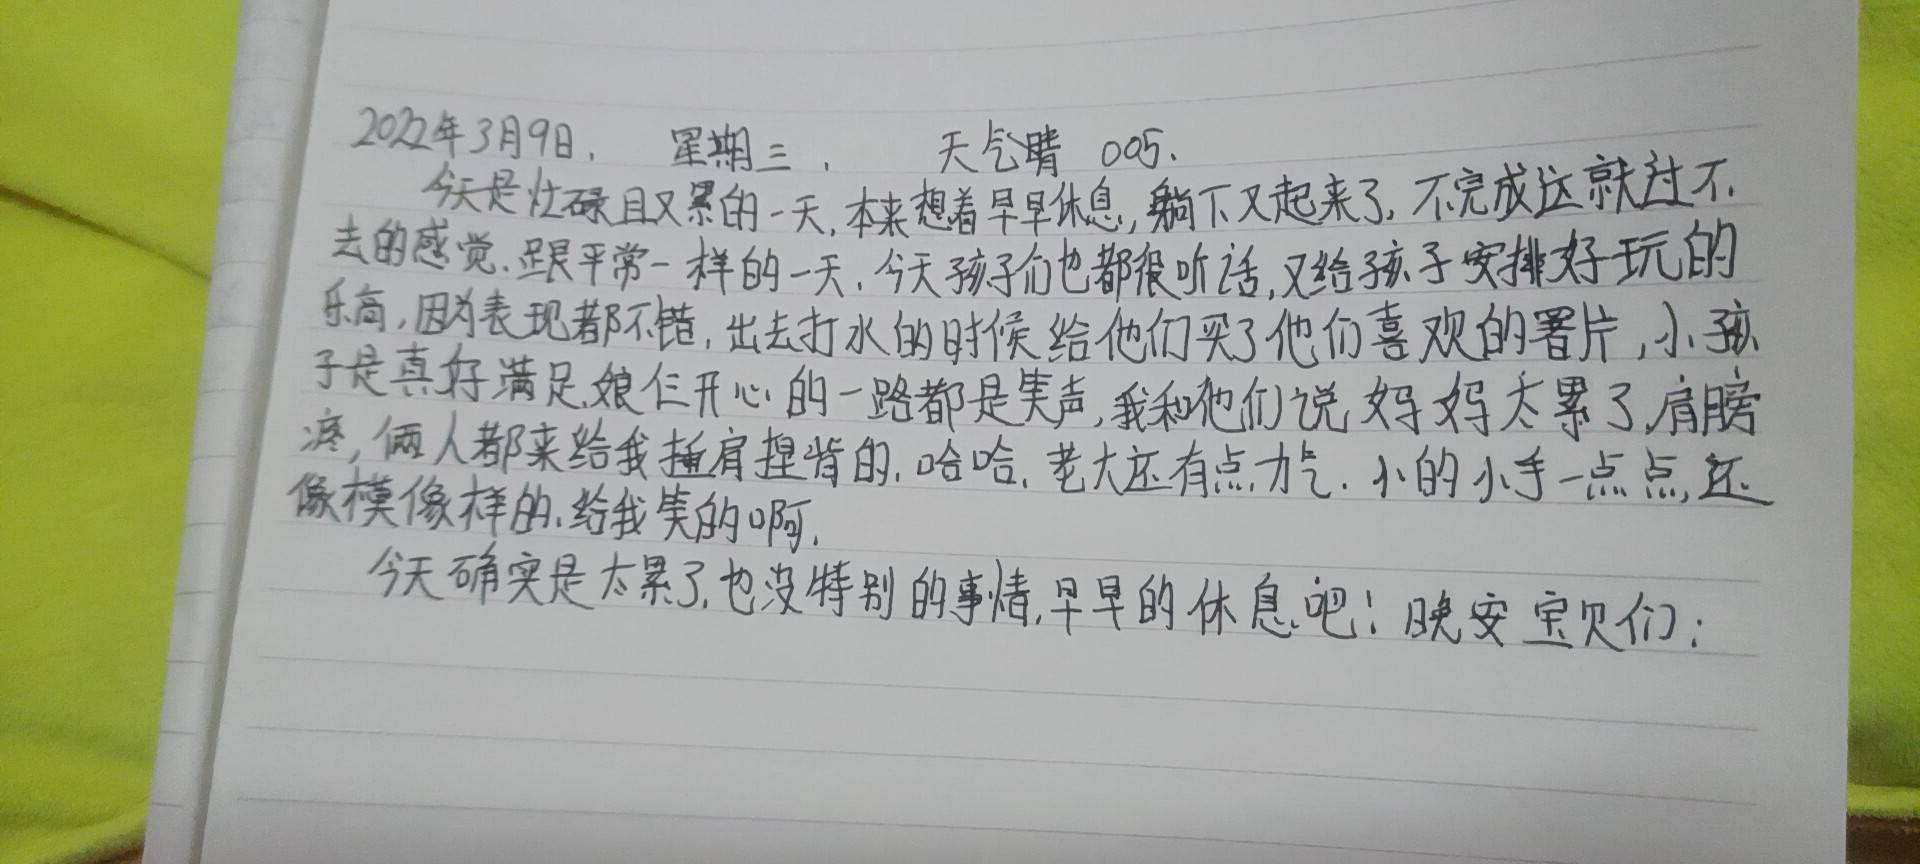 2022年3月9日. 星期三. 天气晴 005.
今天是忙碌且又累的一天,本来想着早早休息,躺下又起来了,不完成这就过不
去的感觉.跟平常一样的一天.今天孩子们也都很听话,又给孩子安排好玩的
乐高,因为表现都不错,出去打水的时候给他们买了他们喜欢的署片,小孩
子是真好满足,娘仨开心的一路都是笑声,我和他们说妈妈太累了,肩膀
疼,俩人都来给我捶肩捏背的.哈哈.老大还有点力气.小的小手一点点,还
像模像样的.给我笑的啊.
今天确实是太累了,也没特别的事情,早早的休息吧!晚安宝贝们: